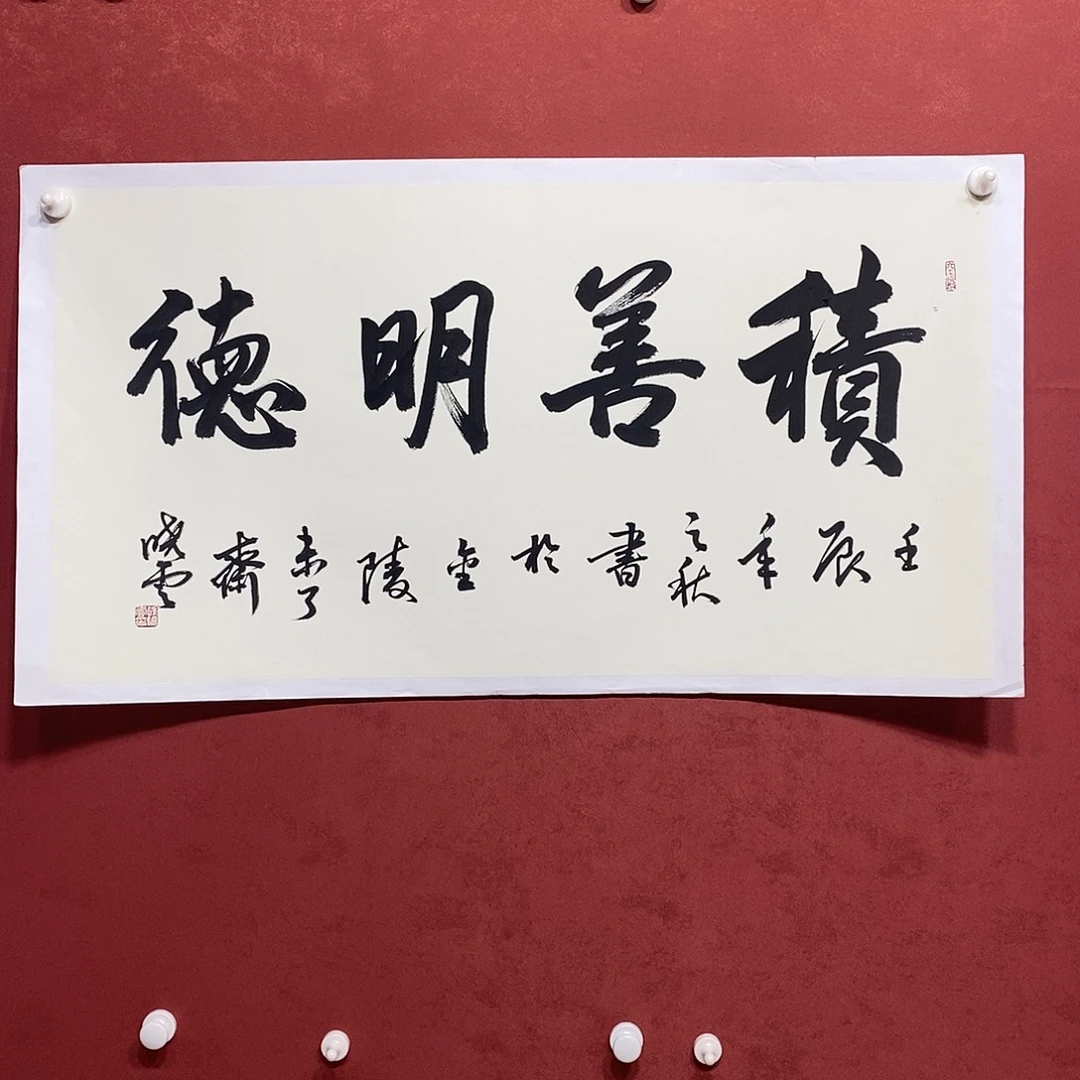 積善明德
壬辰年之秋書於金陵未了齋曉雲